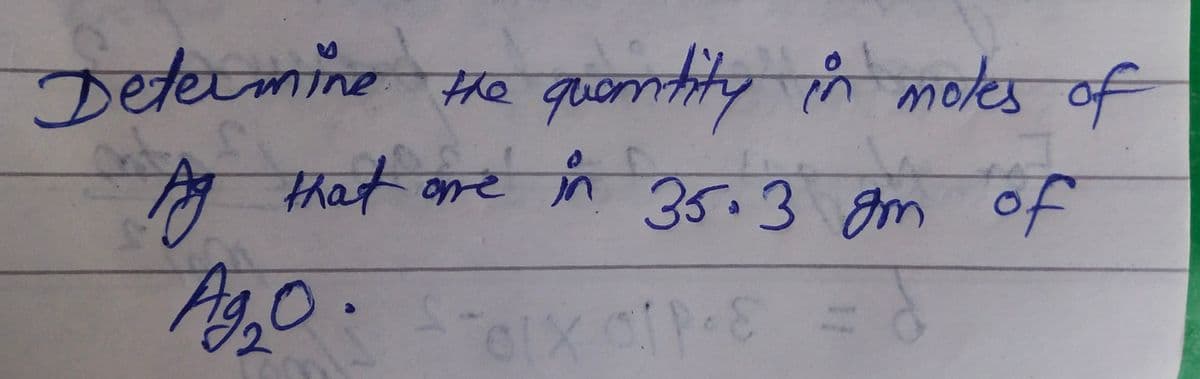 Determine the quantity in moles of
Ag that are in 35.3 gm of
Ag₂O.